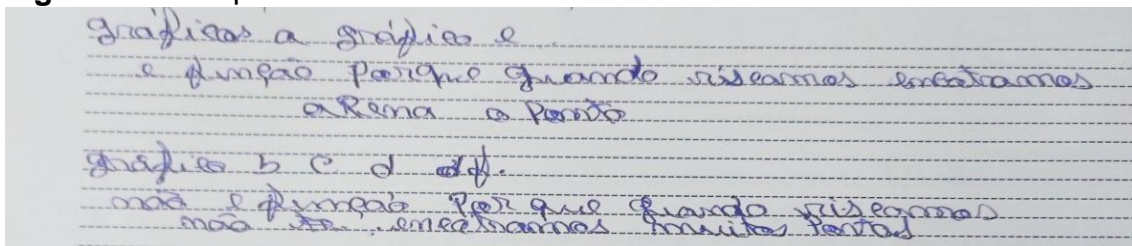 gráficos a gráfico e
e função porque quando riscamos encotramos
apena o Ponto
gráfico b c d f.
não e função Por que quando riscamos
não encotramos muitos Pontos